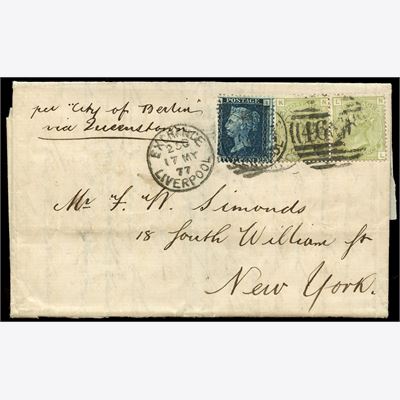 per "City of Berlin"
via Queenstown
POSTAGE
EXCHANGE
17 MY
77
LIVERPOOL
466
Mr F. W. Simonds
18 South William St
New York.